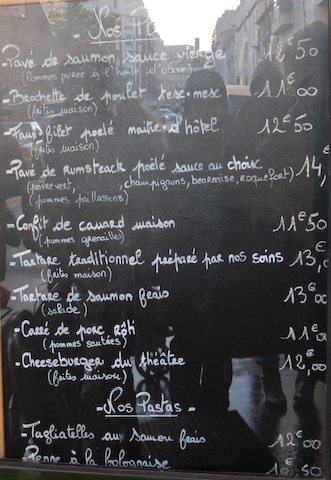 - Nos Pl
- Pavé de saumon sauce vierge 12€50
(Pommes purée à l'huile d'olives)
- Brochette de poulet tex-mex 11€00
(frites maison)
- Faux filet poelé maitre d'hôtel 12€50
(frites maison)
- Pavé de Rumsteack poêlé sauce au choix 14,
(poivre vert, champignons, bearnaise, roquefort)
(pommes paillassons)
- Confit de canard maison 11€50
(pommes grenailles)
- Tartare traditionnel préparé par nos soins 13,
(frites maison)
- Tartare de saumon frais 13€00
(salade)
- Carré de porc rôti 11€00
(pommes sautées)
- Cheeseburger du théâtre 12,00
(frites maison)
- Nos Pastas -
- Tagliatelles aux saumon frais 12€00
- Penne à la bolognaise 10€50